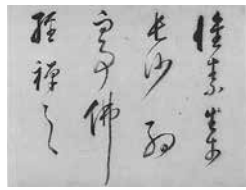 懷素家
長沙幼
而事佛
經禪之